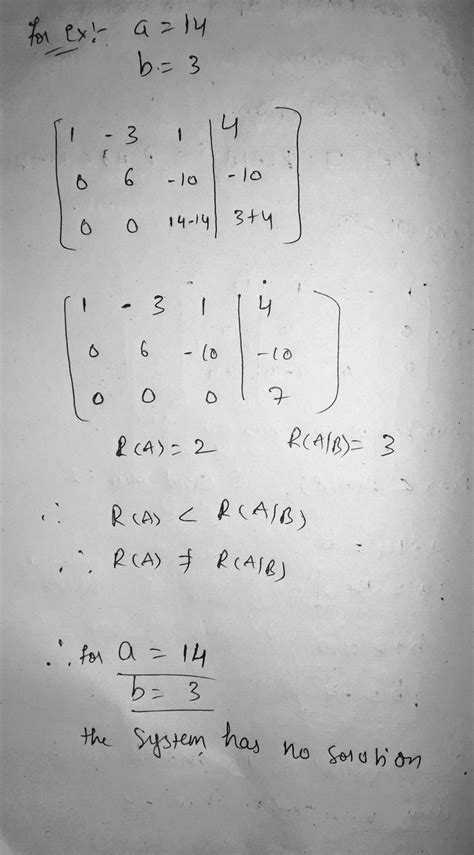 for ex:- a = 14
b = 3
1 - 3 1 | 4
0 6 -10 | -10
0 0 14-14 | 3+4
1 - 3 1 | 4
0 6 -10 | -10
0 0 0 | 7
R(A) = 2 R(A/B) = 3
∴ R(A) < R(A/B)
∴ R(A) ≠ R(A/B)
∴ for a = 14
b = 3
the System has no solution